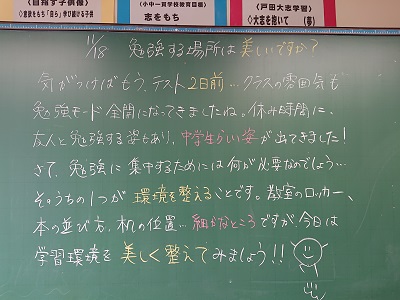 目指す子供像
◇意欲をもち「自ら」学び続ける子供
小中一貫学校教育目標
志をもち
戸田大志学習
◇大志を抱いて (夢)
11/18 勉強する場所は美しいですか?
気がつけばもう、テスト2日前… クラスの雰囲気も
勉強モード全開になってきましたね。休み時間に、
友人と勉強する姿もあり、中学生らしい姿が出てきました!
さて、勉強に集中するためには何が必要なのでしょう…
そのうちの1つが環境を整えることです。教室のロッカー、
本の並び方、机の位置… 細かなところですが、今日は
学習環境を美しく整えてみましょう!!